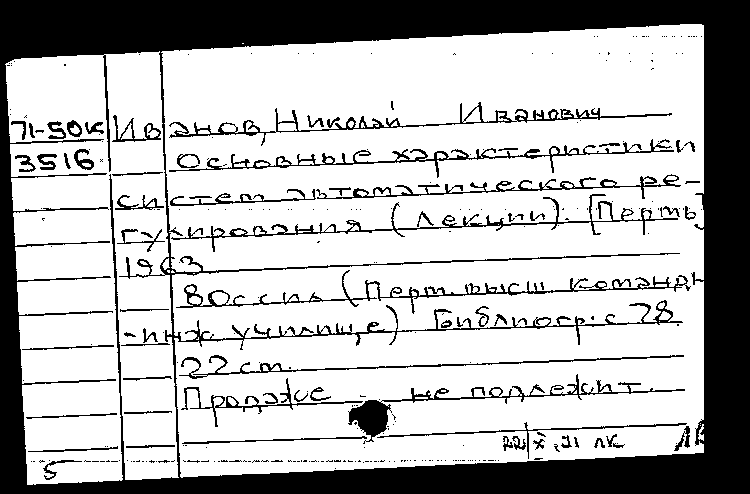 71-50к Иванов, Николай Иванович
3516 Основные характеристики
систем автоматического ре-
гулирования (Лекции). [Пермь]
1963
80с с ил (Перм. высш команд
-инж училище) Библиогр: с 78
22 cm.
Продаже - не подлежит.
22/X, 71 ЛК ЛВ
5